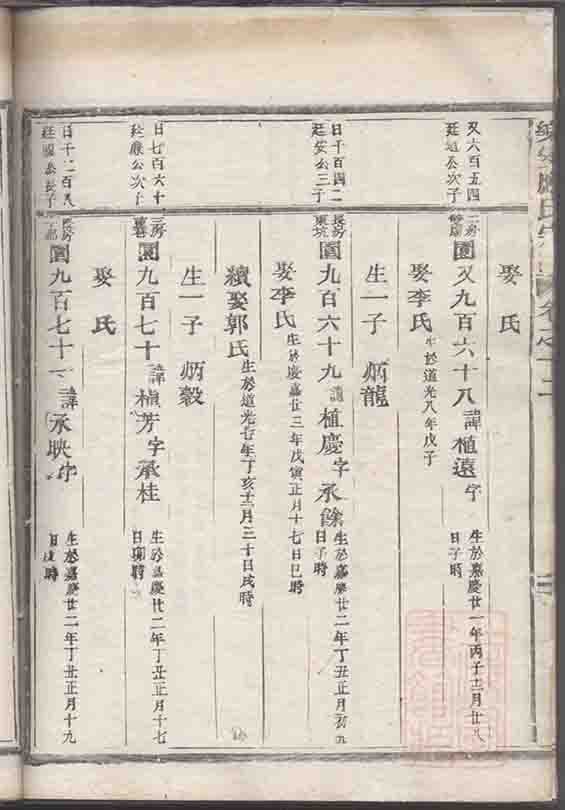 娶 氏
又六百五四
廷道公次子
二房
圓又九百六十八 諱植遠 字
生於嘉慶廿一年丙子十二月廿八
日子時
娶李氏 生於道光八年戊子
生一子 炳龍
日千百四二
廷安公三子
長房
東坑
圓九百六十九 諱植慶 字承餘
生於嘉慶廿二年丁丑正月初九
日子時
娶李氏 生於嘉慶廿三年戊寅正月十七日巳時
續娶郭氏 生於道光七年丁亥十二月三十日戌時
生一子 炳毅
日七百六十
公次子
三房
圓九百七十 諱植芳 字承桂
生於嘉慶廿二年丁丑正月十七
日卯時
娶 氏
日千二百八
公長子
長房
圓九百七十一 諱承映 字
生於嘉慶廿二年丁丑正月十九
日戌時